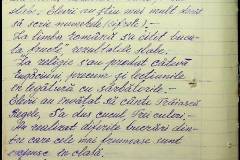 slab. Elevii au știu mai mult sunt
să scrie numerele (cifrele).-
La limba română s-a citit bucata
„fructe” rezultatele slabe.-
La religie s-au predat câteva
rugăciuni precum și lecțiunile
în legătură cu sărbătorile.-
Elevii au învățat să cânte Trăiască
Regele, Șa dus cucul, Trei culori.-
Au realizat diferite lucrări din-
tre care cele mai frumoase sunt
expuse în clasă.-